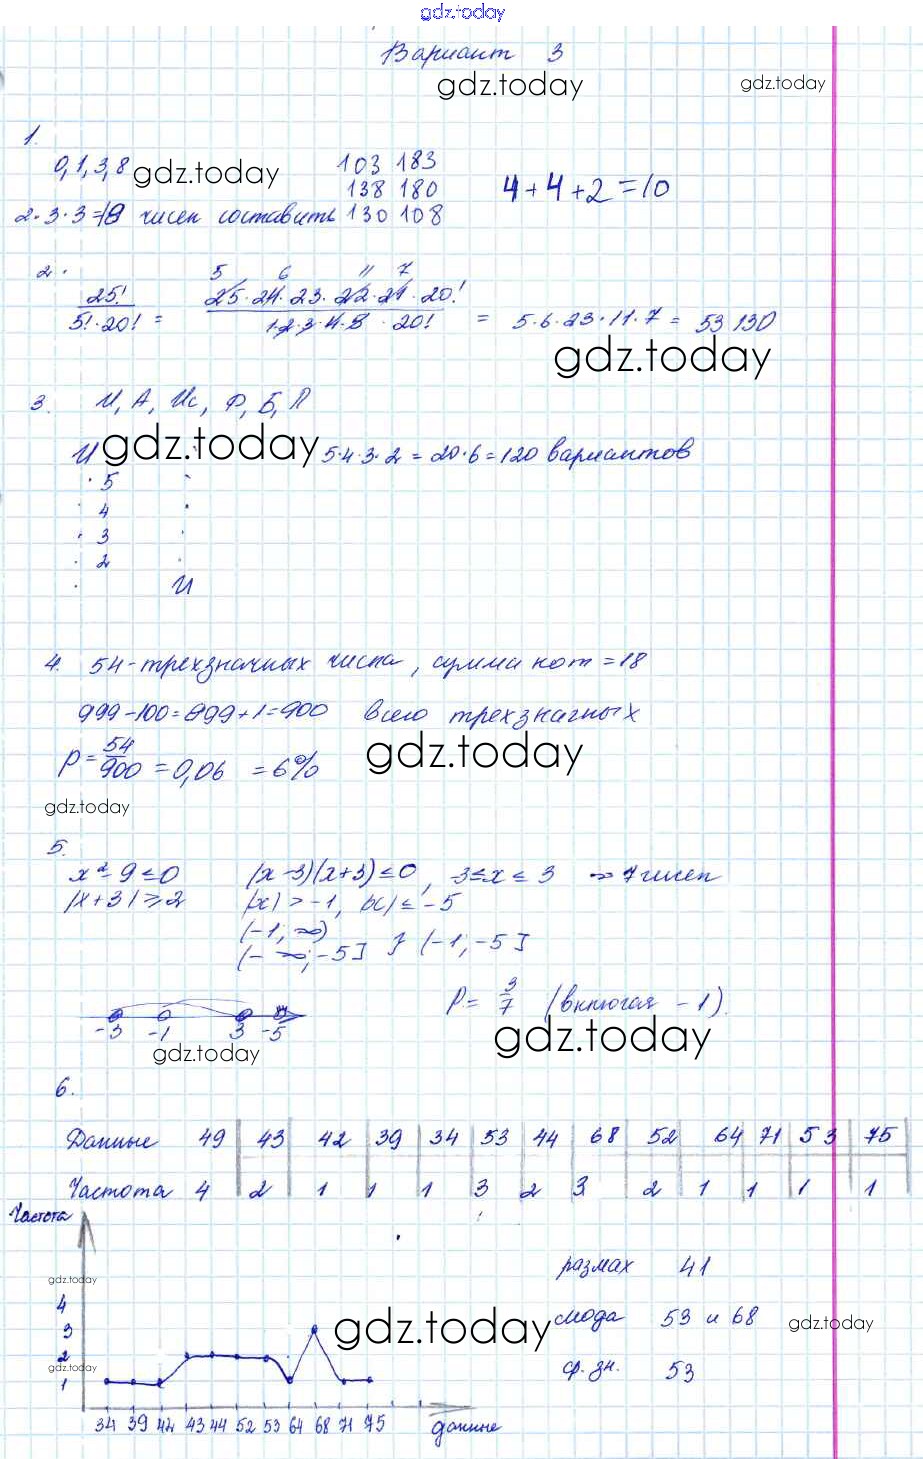 gdz.today
Вариант 3
gdz.today gdz.today
1.
0,1,3,8 gdz.today 103 183
138 180 4+4+2=10
2·3·3=18 чисел составить 130 108
2.
5 6 11 7
25! / 5!·20! = 25·24·23·22·21·20! / 1·2·3·4·5·20! = 5·6·23·11·7 = 53 130
gdz.today
3. И, А, Ис, Ф, Б, Л
И gdz.today 5·4·3·2 = 20·6 = 120 вариантов
5
4
3
2
И
4. 54-трехзначных числа, сумма кот = 18
999-100=899+1=900 всего трехзначных
P = 54/900 = 0,06 = 6%
gdz.today
gdz.today
5.
x²-9≤0 (x-3)(x+3)≤0, -3≤x≤3 7 чисел
|x+3|≥2 |x|>-1, |x|≤-5
(-1; ∞)
(-∞; -5] } (-1; -5]
P = 3/7 (включая -1).
-3 -1 3 -5
gdz.today
gdz.today
6.
Данные 49 43 42 39 34 53 44 68 52 64 71 53 75
Частота 4 2 1 1 1 3 2 3 2 1 1 1 1
Частота
gdz.today
размах 41
4
3 gdz.today
мода 53 и 68 gdz.today
2
gdz.today
ср.зн. 53
1
34 39 42 43 44 52 53 64 68 71 75 данные